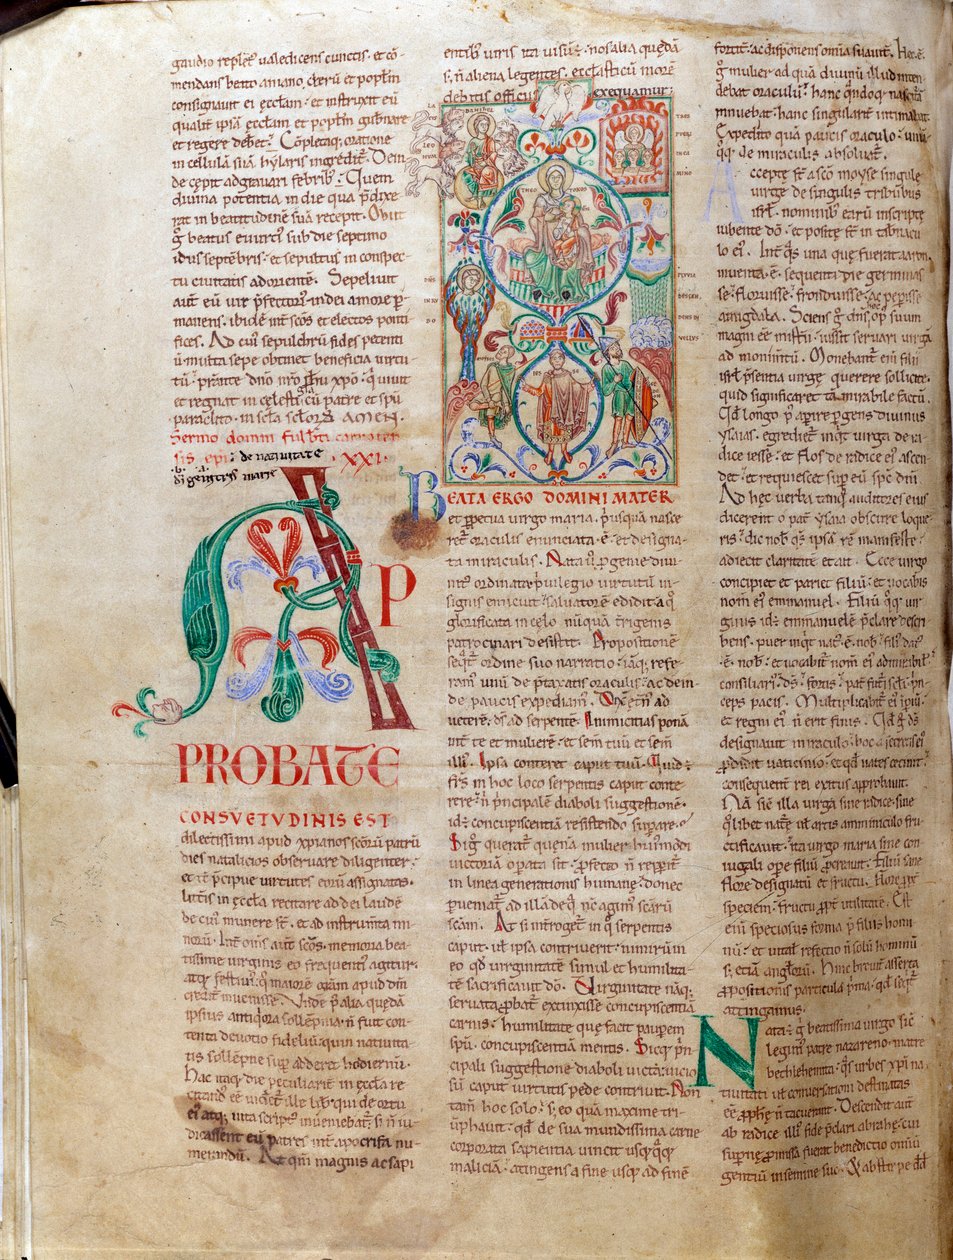 gaudio replet᷒ ualedicens cunctis. et cō
mendans betto amano clerū et popl̄m
consignauit ei eccłam. et instruxit eū
qualit̄ ipsā eccłam et popl̄m gub̄nare
et regere deberet. Cōpletaq; oratione
in cellulā suā hylaris ingredit̄. Dein
de cepit adgrauari febrib;. Quem
diuina potentia in die qua p̄dixe
rat in beatitudinē suā recepit. Obiit
beatus sub die septimo
idus septēbris. et sepultus in conspec
tu ciuitatis adorient̄. Sepeliuit
aut̄ eū uir in dei amore p̄
manens. ibidē int̄ sc̄os et electos ponti
fices. Ad cui᷒ sepulchrū fides petenti
ū multa sepe obtinet beneficia uirtu
tū. p̄stante dn̄o nr̄o ihu xp̄o. q̄ uiuit
et regnat in celesti gl̄a cū patre et sp̄u
paraclito. in scła scłorꝝ AMEN.
Sermo domni fulb̄ti carnoten
sis ep̄i. de natiuitate XXI.
di genitricis marie
A P
PROBATE
CONSVETVDINIS EST
dilectissimi apud xp̄ianos scōrū patrū
dies natalicios obseruare diligenter.
et tc̄ p̄cipue uirtutes eorū assignatas
litt̄is in eccła recitare ad dei laudē
de cui᷒ munere st̄. et ad instrumtā mi
norū. Int̄ om̄s aut̄ scōs. memoria bea
tissime uirginis eo frequenti᷒ agitur
atq; festiui᷒. q̄ maiorē gr̄am apud dm̄
credit̄ inuenisse. Vnde p᷒ alia quędā
ipsius antiqiora sollēpnia. n̄ fuit con
tenta deuotio fideliū quin natiuita
tis sollēpne sup̄ adderet hodiernū.
Hac itaq; die peculiarit̄ in eccła re
citand᷒ eē uidet̄ ille lib̄. qui de ortu
ei᷒ atq; uita script᷒ inueniebat̄. si n̄ iu
dicassent eū patres int̄ apocrifa nu
merandū. At qm̄ magnis ac sapi
entib; uiris ita uisū ē. nos alia quędā
s; n̄ aliena legentes. ecclasticū morē
debitis officiis exequamur.
DANIHEL
LEO
NVM
THEO TOKOS
TRES
PVERI
IN CA
MINO
DN̄S
IN RV
BO
PLVVIA
DESCEN
DENS IN
VELLVS
IESSE
BEATA ERGO DOMINI MATER
et ppetua uirgo maria. p̄usquā nasce
ret̄ oraculis enunciata ē. et designa
ta miraculis. Nata u᷒. p genīe diui
nit᷒ ordinata. p̄uilegio uirtutū in
signis emicuit. saluatorē edidit. a q̊
glorificata in celo. nūquā trigenis
patrocinari desistit. Propositionē
seq̄t̄ ordine suo narratio. iāq; refe
rom᷒ unū de p̄taxatis oraculis. ac dein
de paucis expediam᷒. Dixit eni᷒ ad
ueterē. dś ad serpentē. Inimicitias ponā
int̄ te et mulierē. et sem̄ tuū et sem̄
illi᷒. Ipsa conteret caput tuū. Quid ē
fr̄s in hoc loco serpentis caput conte
rere. n̄ p̄ncipalē diaboli suggestionē
id ē concupiscentiā resistendo sup̄are.
Si q̊ querat̄ quenā mulier hui᷒modi
uictoriā opata sit. p̄fecto n̄ repperit̄
in linea generationis humane. donec
pueniat̄ ad illā de q̊ nc̄ agim᷒ scārū
scām. At si introget̄ in q̊ serpentis
caput. ut ipsa contriuerit. nimirū in
eo qd̄ uirginitatē simul et humilita
tē sacrificauit dō. Virginitate nāq;
seruata. probat̄ extinxisse concupiscentiā
carnis. humilitate que facit pauperē
sp̄u. concupiscentiā mentis. Sicq; p̄n
cipali suggestione diaboli uicta. uicio
sū caput uirtutis pede contriuit. Non
tam̄ hoc solo. s; eo quā maxime tri
ūphauit. qd̄ de sua mundissima carne
corporata sapientia uincit usq;q̊q;
maliciā. attingens a fine usq; ad finē
fortit̄. ac disponens omia suauit̄. Hec ē
g̊ mulier ad quā diuinū illud inten
debat oraculū. hanc q̄ndoq; nascitā
innuebat. hanc singularit̄ intimabat.
Expedito quā paucis oraculo. uni᷒
q̊q; de miraculis absoluat̄.
Accepte st̄ ascō moyse singule
uirge de singulis tribubus
isrl̄. nominib; earū inscripte
iubente dō. et posite st̄ in tabnacu
lo ei᷒. Int̄ q̄s una que fuerat aaron
inuenta ē. sequenti die germinas
se. floruisse. fronduisse. ac pepisse
amigdala. Sciens g̊ dn̄s hoc op᷒ suum
magni eē mist̄ii. iussit seruari uirgā
ad monimtū. Monebant̄ eni᷒ filii
isrl̄ p̄sentia uirge querere sollicite.
quid significaret tā mirabile factū.
Qd̄ longo p᷒ aperire pgens diuinus
ysaias. egrediet̄ inq̄t uirga de ra
dice iesse. et flos de radice ei᷒ ascen
det. et requiescet sup̄ eū sp̄s dn̄i.
Ad hęc uerba tanq̄ auditores eius
dicerent o pat̄ ysaia obscure loque
ris. dic nob̄ q̄s ipsā rē manifeste.
adiecit claritatē et ait. Ecce uirgo
concipiet et pariet filiū. et uocabit᷒
nom̄ ei᷒ emmanuel. Filiū q̄que uir
ginis id ē emmanuelē p̄clare descri
bens. puer inq̄t nat᷒ ē nob̄. fili᷒ dat᷒
ē nob̄. et uocabit̄ nom̄ ei᷒ admirabil᷒
consiliari᷒. dś. fortis. pat̄ futi᷒ scłi. p̄n
ceps pacis. Multiplicabit̄ ei᷒
et regni ei᷒ n̄ erit finis. Qd̄ g̊ dś
designauit miraculo. hoc
p̄didit uaticinio. et qd̄ uates cecinit
consequent᷒ rei exitus approbauit.
Nā sic̄ illa uirga sine radice. sine
q̊libet nat̄e ut artis amminiculo fru
ctificauit. ita uirgo maria sine con
iugali ope filiū pcreauit. Filiū sane
flore designatū et fructu. flore ppt̄
speciem. fructu ppt̄ utilitatē. Est
eni᷒ speciosus forma p̄ filiis homi
nū. et uitał refectio n̄ solū hominū
s; etiā angłorū. Hinc breuit̄ asserta
propositionis particula p̄ma. qd̄ seq̄t̄
attingamus.
Nata ē g̊ beatissima uirgo sic̄
legim᷒. patre nazareno. matre
bethlehemita. q̄s urbes xp̄i na
tiuitati ut conuersationi destinatas
eē pph̄e n̄ tacuerunt. Descendit aut̄
ab radice illi᷒ fide p̄clari abrahę. cui
sup̄ne pmissa fuerat benedictio omiū
gentiū in semine suo.